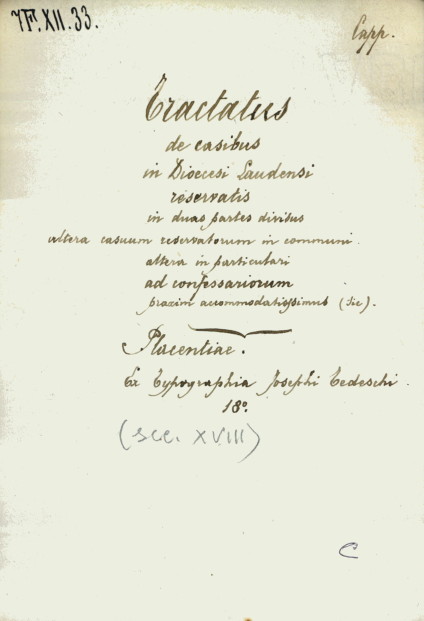 7F.XII.33.
Capp.
Tractatus
de casibus
in Dioecesi Laudensi
reservatis
in duas partes divisus
altera casuum reservatorum in communi
altera in particulari
ad confessariorum
praxim accommodatissimus (sic).
Placentiae.
Ex Typographia Josephi Tedeschi.
18º.
(sec. XVIII)
C